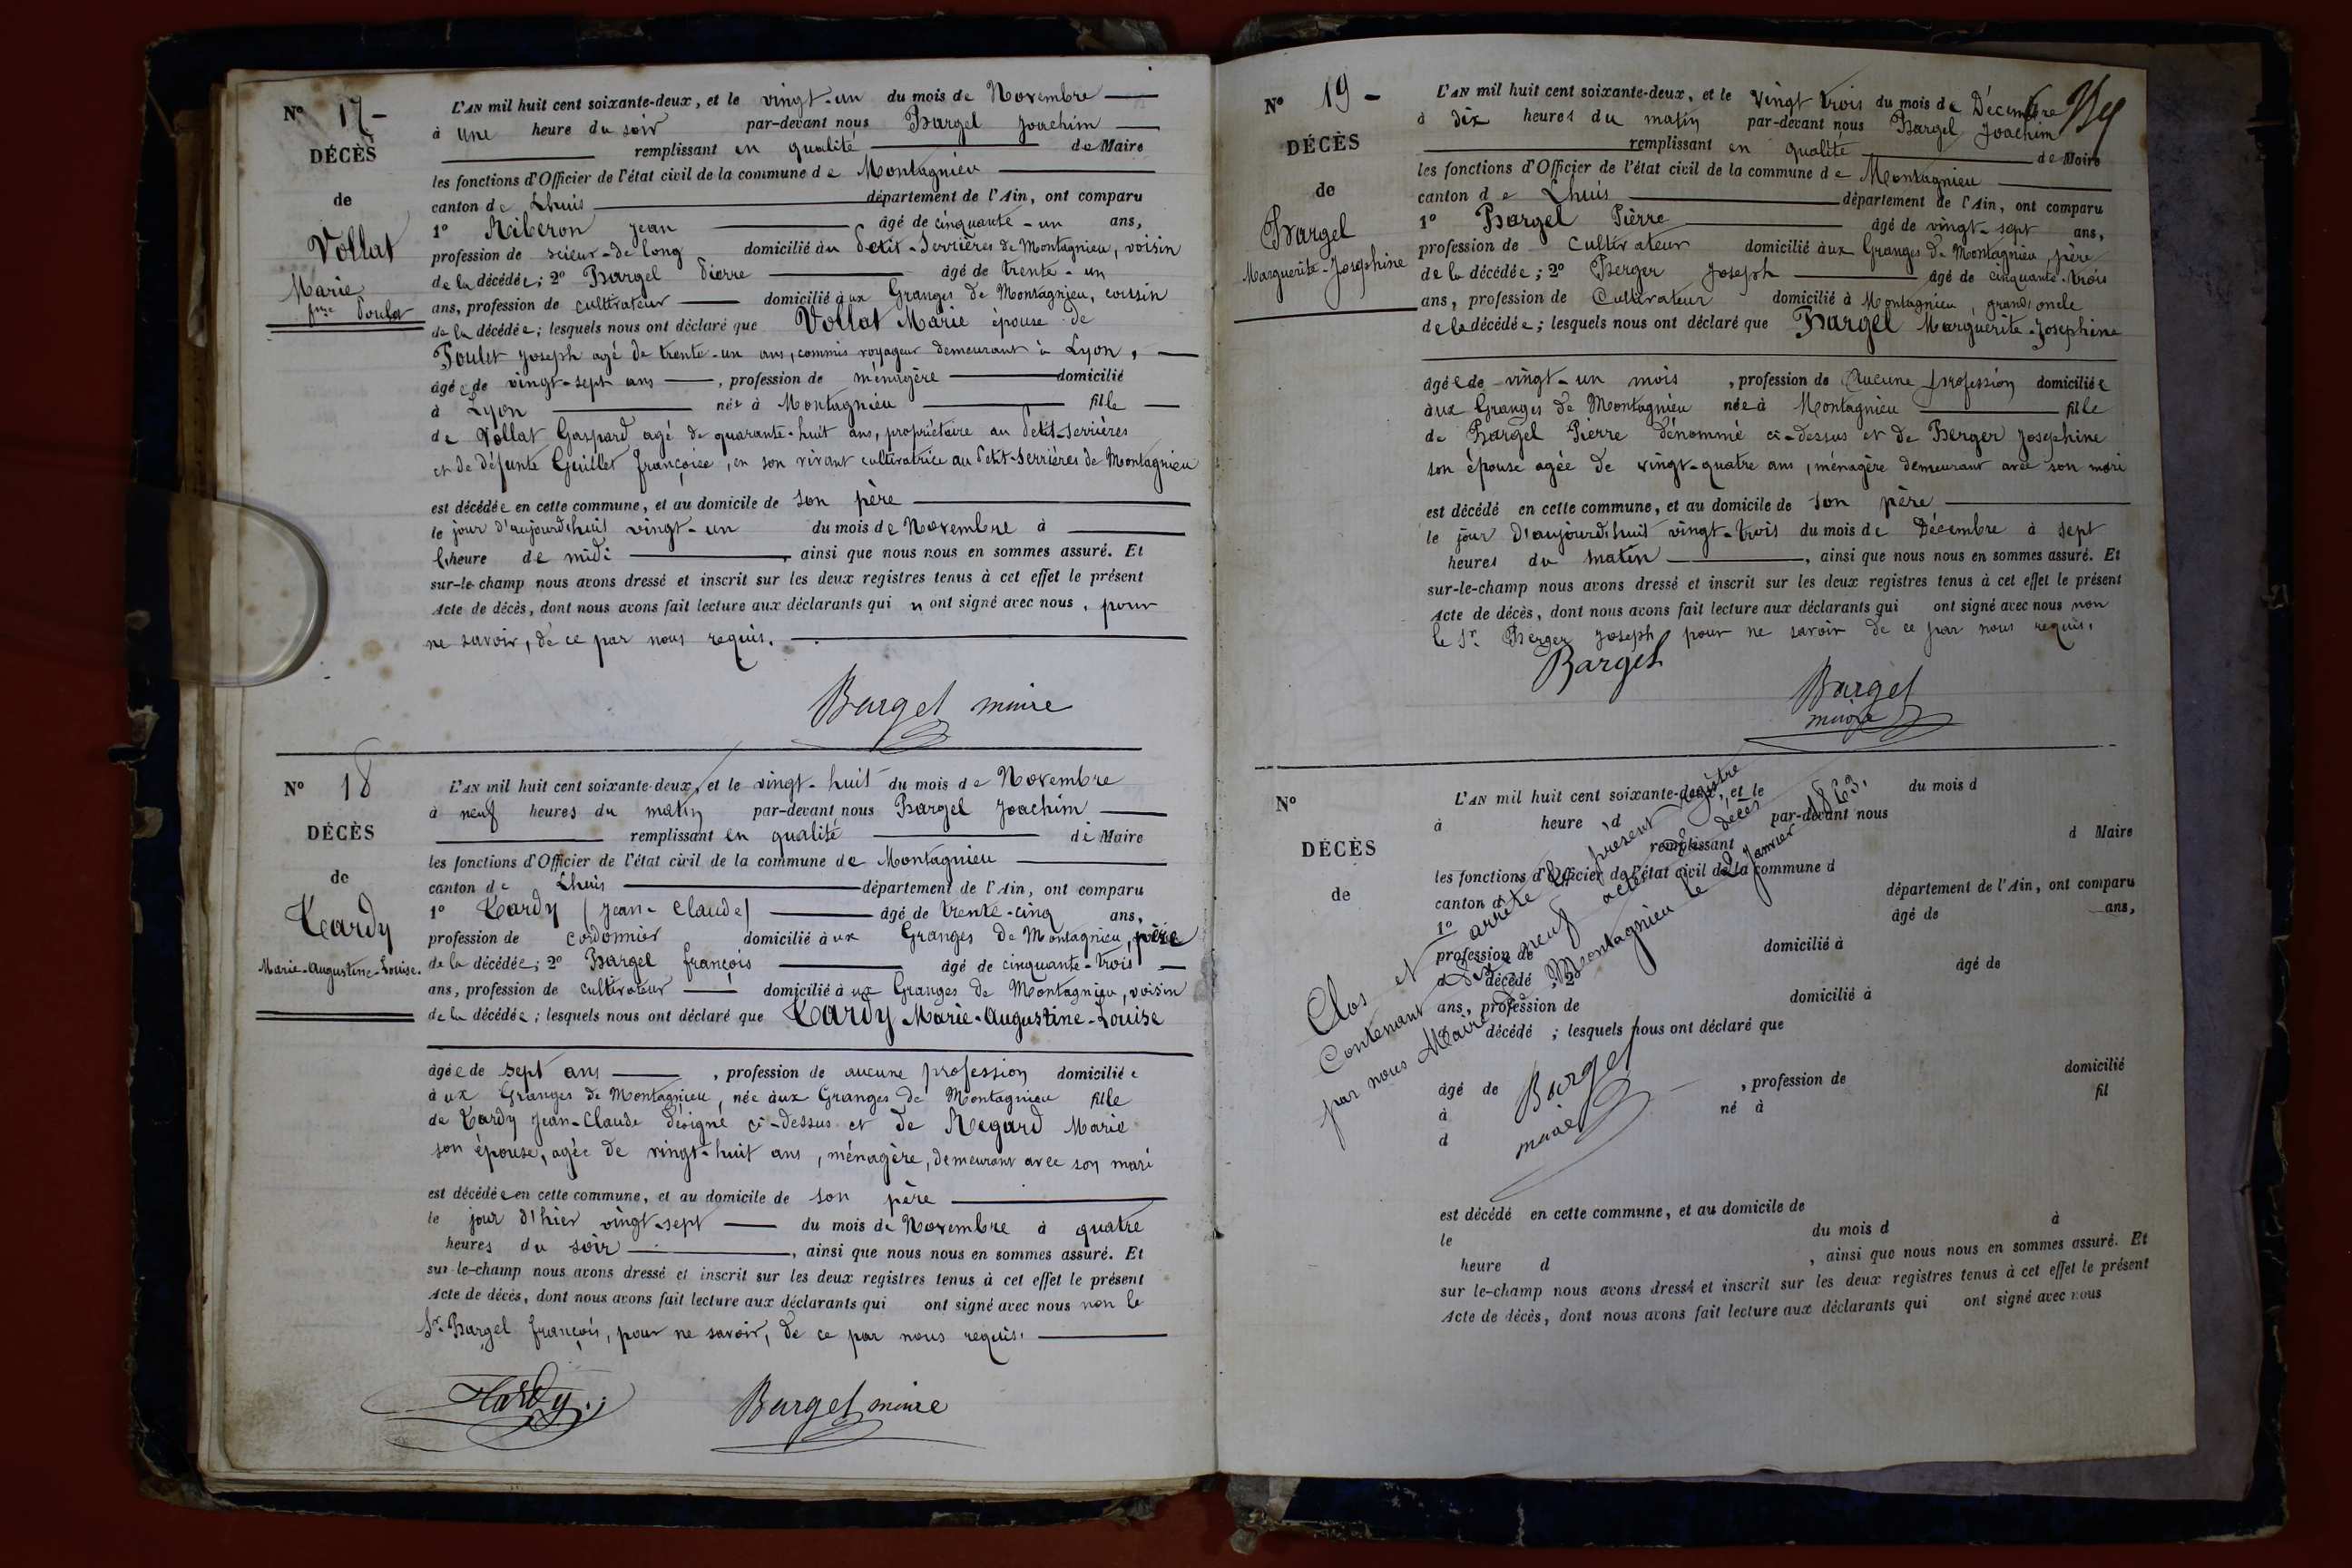 Nº 17 -
DÉCÈS
de
Vollat
Marie
fme Poulet
L'AN mil huit cent soixante-deux, et le vingt-un du mois de Novembre
à une heure du soir par-devant nous Bargel Joachim
remplissant en qualité de Maire
les fonctions d'Officier de l'état civil de la commune de Montagnieu
canton de Lhuis département de l'Ain, ont comparu
1º Riberon Jean âgé de cinquante-un ans,
profession de scieur-de long domicilié au Petit-Serrières de Montagnieu, voisin
de la décédée; 2º Bargel Pierre âgé de trente-un
ans, profession de cultivateur domicilié aux Granges de Montagnieu, cousin
de la décédée; lesquels nous ont déclaré que Vollat Marie épouse de
Poulet Joseph agé de trente-un ans, commis voyageur demeurant à Lyon,
âgée de vingt-sept ans, profession de ménagère domicilié
à Lyon née à Montagnieu fille
de Vollat Gaspard agé de quarante-huit ans, propriétaire au Petit-Serrières
et de défunte Guillet françoise, en son vivant cultivatrice au Petit-Serrières de Montagnieu
est décédée en cette commune, et au domicile de son père
le jour d'aujourdhuit vingt-un du mois de Novembre à
l'heure de midi, ainsi que nous nous en sommes assuré. Et
sur-le-champ nous avons dressé et inscrit sur les deux registres tenus à cet effet le présent
Acte de décès, dont nous avons fait lecture aux déclarants qui n ont signé avec nous, pour
ne savoir, de ce par nous requis.
Bargel maire
Nº 18
DÉCÈS
de
Tardy
Marie-Augustine-Louise.
L'AN mil huit cent soixante-deux, et le vingt-huit du mois de Novembre
à neuf heures du matin par-devant nous Bargel Joachim
remplissant en qualité de Maire
les fonctions d'Officier de l'état civil de la commune de Montagnieu
canton de Lhuis département de l'Ain, ont comparu
1º Tardy (Jean-Claude) âgé de trente-cinq ans,
profession de cordonnier domicilié aux Granges de Montagnieu, père
de la décédée; 2º Bargel françois âgé de cinquante-trois
ans, profession de cultivateur domicilié aux Granges de Montagnieu, voisin
de la décédée; lesquels nous ont déclaré que Tardy Marie-Augustine-Louise
âgée de sept ans, profession de aucune profession domiciliée
aux Granges de Montagnieu, née aux Granges de Montagnieu fille
de Tardy Jean-Claude désigné ci-dessus et de Regard Marie
son épouse, agée de vingt-huit ans, ménagère, demeurant avec son mari
est décédée en cette commune, et au domicile de son père
le jour d'hier vingt-sept du mois de Novembre à quatre
heures du soir, ainsi que nous nous en sommes assuré. Et
sur-le-champ nous avons dressé et inscrit sur les deux registres tenus à cet effet le présent
Acte de décès, dont nous avons fait lecture aux déclarants qui ont signé avec nous non le
Sr. Bargel françois, pour ne savoir, de ce par nous requis.
Tardy
Bargel maire
Nº 19 -
DÉCÈS
de
Bargel
Marguerite-Josephine
L'AN mil huit cent soixante-deux, et le vingt trois du mois de Décembre
à dix heures du matin par-devant nous Bargel Joachim
remplissant en qualité de Maire
les fonctions d'Officier de l'état civil de la commune de Montagnieu
canton de Lhuis département de l'Ain, ont comparu
1º Bargel Pierre âgé de vingt-sept ans,
profession de cultivateur domicilié aux Granges de Montagnieu, père
de la décédée; 2º Berger Joseph âgé de cinquante-trois
ans, profession de Cultivateur domicilié à Montagnieu, grand oncle
de la décédée; lesquels nous ont déclaré que Bargel Marguerite-Josephine
âgée de vingt-un mois, profession de Aucune profession domiciliée
aux Granges de Montagnieu née à Montagnieu fille
de Bargel Pierre dénommé ci-dessus et de Berger Josephine
son épouse agée de vingt-quatre ans, ménagère demeurant avec son mari
est décédé en cette commune, et au domicile de son père
le jour d'aujourdhuit vingt-trois du mois de Décembre à sept
heures du matin, ainsi que nous nous en sommes assuré. Et
sur-le-champ nous avons dressé et inscrit sur les deux registres tenus à cet effet le présent
Acte de décès, dont nous avons fait lecture aux déclarants qui ont signé avec nous non
le Sr. Berger Joseph pour ne savoir de ce par nous requis.
Bargel
Bargel
maire
Nº
DÉCÈS
de
L'AN mil huit cent soixante-deux, et le du mois d
à heure d par-devant nous
remplissant d Maire
les fonctions d'Officier de l'état civil de la commune d
canton d département de l'Ain, ont comparu
1º âgé de ans,
profession de domicilié à
d décédé ; 2º âgé de
ans, profession de domicilié à
décédé ; lesquels nous ont déclaré que
âgé de , profession de domicilié
à né à fil
d
est décédé en cette commune, et au domicile de
le du mois d à
heure d , ainsi que nous nous en sommes assuré. Et
sur le-champ nous avons dressé et inscrit sur les deux registres tenus à cet effet le présent
Acte de décès, dont nous avons fait lecture aux déclarants qui ont signé avec nous
Clos et arrêté le présent registre
Contenant dix-neuf actes de décès
par nous Maire de Montagnieu le 2 Janvier 1863.
Bargel
maire